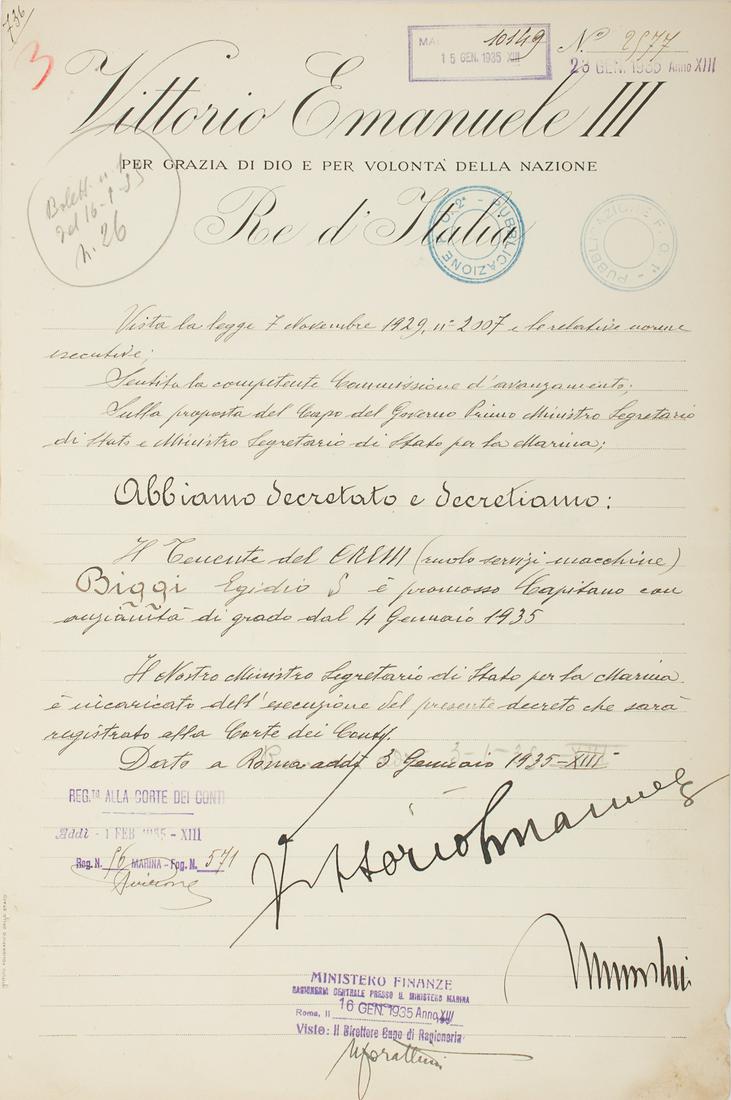 736
3
10149
15 GEN. 1935 XIII
N.º 2977
23 GEN. 1935 Anno XIII
Vittorio Emanuele III
PER GRAZIA DI DIO E PER VOLONTÀ DELLA NAZIONE
Re d'Italia
Bolett. n. 1
del 16-1-35
n. 26
PUBBLICAZIONE F.O. 2ª
PUBBLICAZIONE F.O. 1ª
Vista la legge 7 Novembre 1929, nº 2007 e le relative norme
esecutive;
Sentita la competente Commissione d'avanzamento;
Sulla proposta del Capo del Governo Primo Ministro Segretario
di Stato e Ministro Segretario di Stato per la Marina;
Abbiamo decretato e decretiamo:
Il Tenente del CREM (ruolo servizi macchine)
Biggi Egidio S è promosso Capitano con
anzianità di grado dal 4 Gennaio 1935
Il Nostro Ministro Segretario di Stato per la Marina
è incaricato dell'esecuzione del presente decreto che sarà
registrato alla Corte dei Conti.
Dato a Roma addì 3 Gennaio 1935-XIII
REG.TO ALLA CORTE DEI CONTI
Addì - 1 FEB 1935 - XIII
Reg. N. 16 MARINA - Fog. N. 571
Vittorio Emanuele
Mussolini
MINISTERO FINANZE
RAGIONERIA CENTRALE PRESSO IL MINISTERO MARINA
Roma, li 16 GEN. 1935 Anno XIII
Visto: Il Direttore Capo di Ragioneria